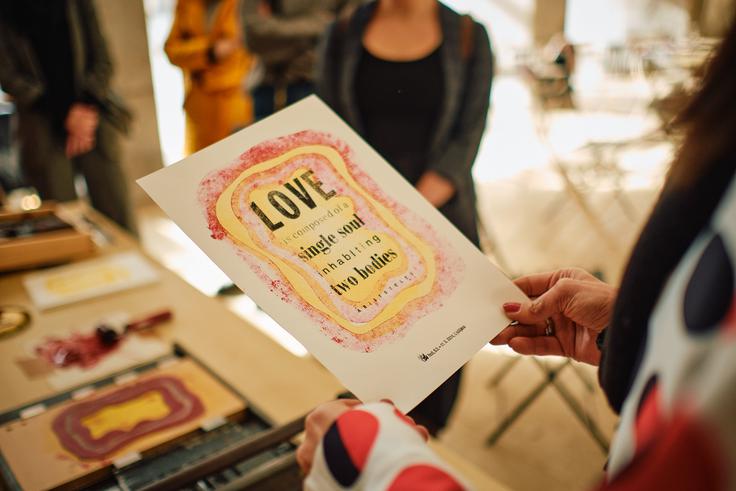 LOVE
is composed of a
single soul
inhabiting
two bodies
Aristoteles